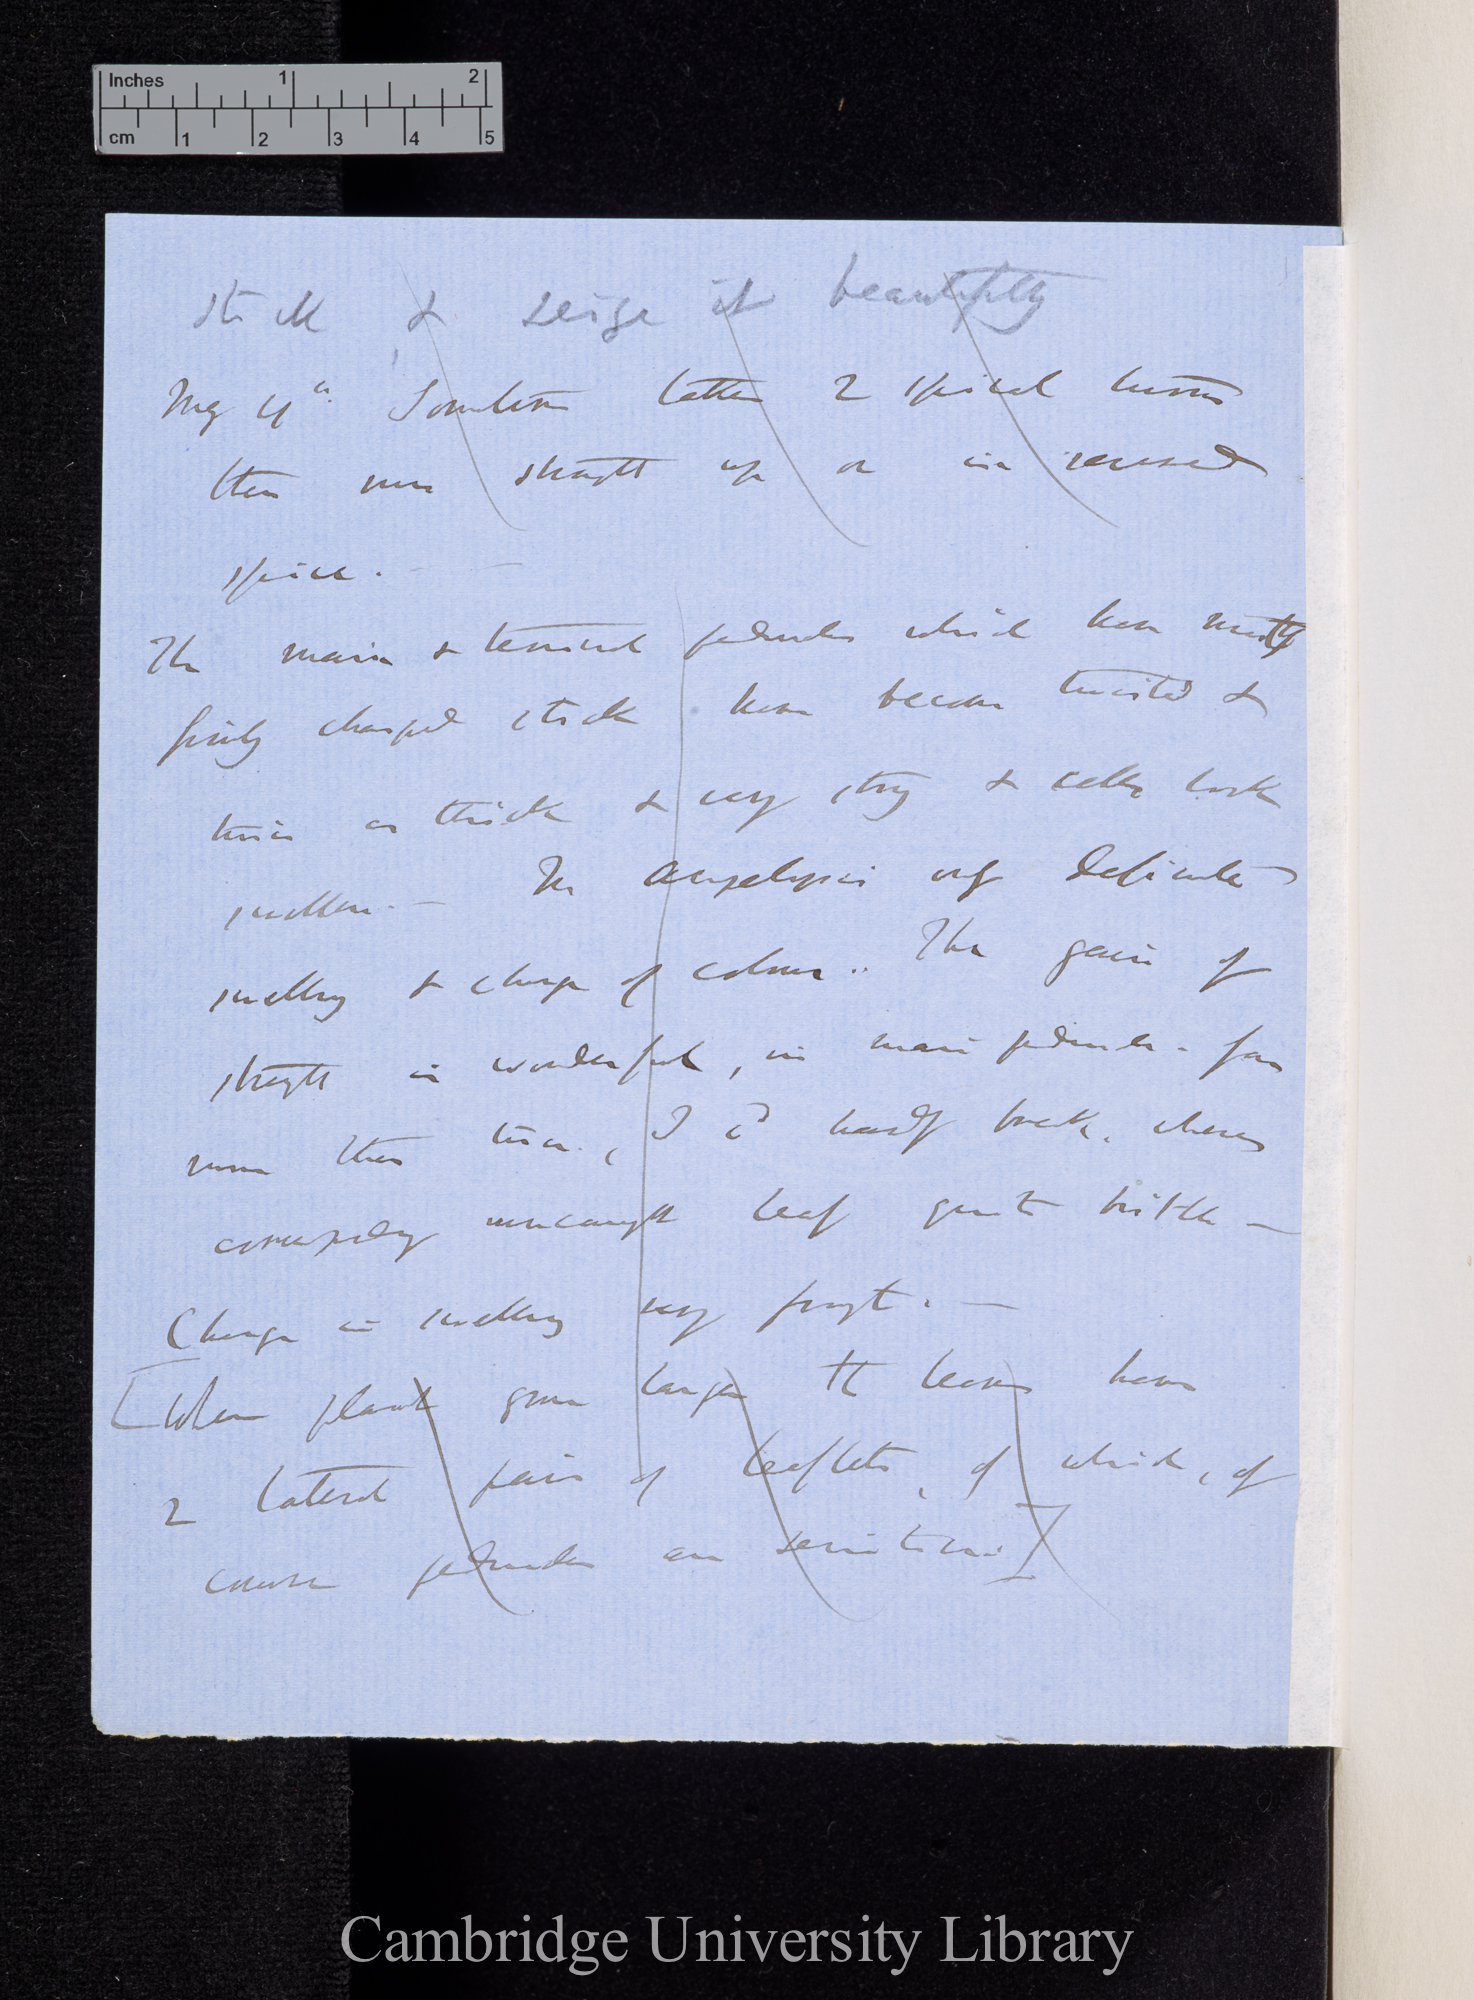 Inches 1 2
cm 1 2 3 4 5
stick & seize it beautifully
May 4th. Sometimes takes 2 spiral turns
then runs straight up or in reversed
spire. —
The main & terminal peduncles which have
firmly clasped stick have become twisted &
twice as thick & very strong & cells look
swollen. — The Ampelopsis only
swelling & change of colour.. The gain of
strength is wonderful, in main peduncle. far
more than twice, I cd hardly break, whereas
corresponding uncaught leaf quite brittle —
Change in swelling very . —
[When plant grown larger the leaves have
2 lateral pairs of leaflets, of which, of
course peduncles are sensitive.]
Cambridge University Library